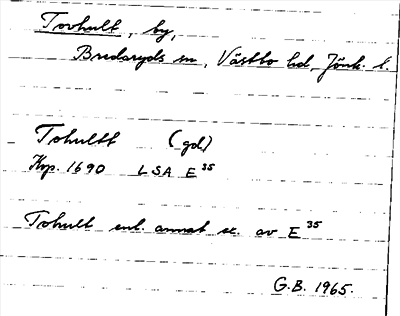 Tovhult, by,
Bredaryds sn, Västbo hd, Jönk. l.
Tohultt (gd)
Kop. 1690 LSA E 35
Tohult enl. annat ex. av E 35
G.B. 1965.